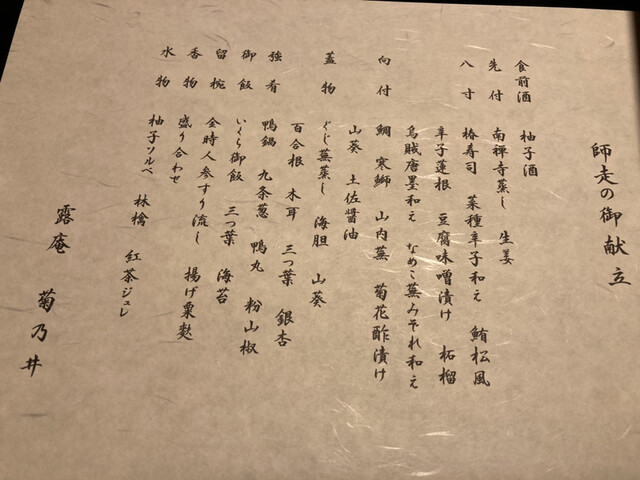 師走の御献立
食前酒 柚子酒
先付 南禅寺蒸し 生姜
八寸 椿寿司 菜種辛子和え 鮪松風
辛子蓮根 豆腐味噌漬け 柘榴
烏賊唐墨和え なめこ蕪みぞれ和え
向付 鯛 寒鰤 山内蕪 菊花酢漬け
山葵 土佐醬油
蓋物 ぐじ蕪蒸し 海胆 山葵
百合根 木耳 三つ葉 銀杏
強肴 鴨鍋 九条葱 鴨丸 粉山椒
御飯 いくら御飯 三つ葉 海苔
留椀 金時人参すり流し 揚げ粟麩
香物 盛り合わせ
水物 柚子ソルベ 林檎 紅茶ジュレ
露庵 菊乃井